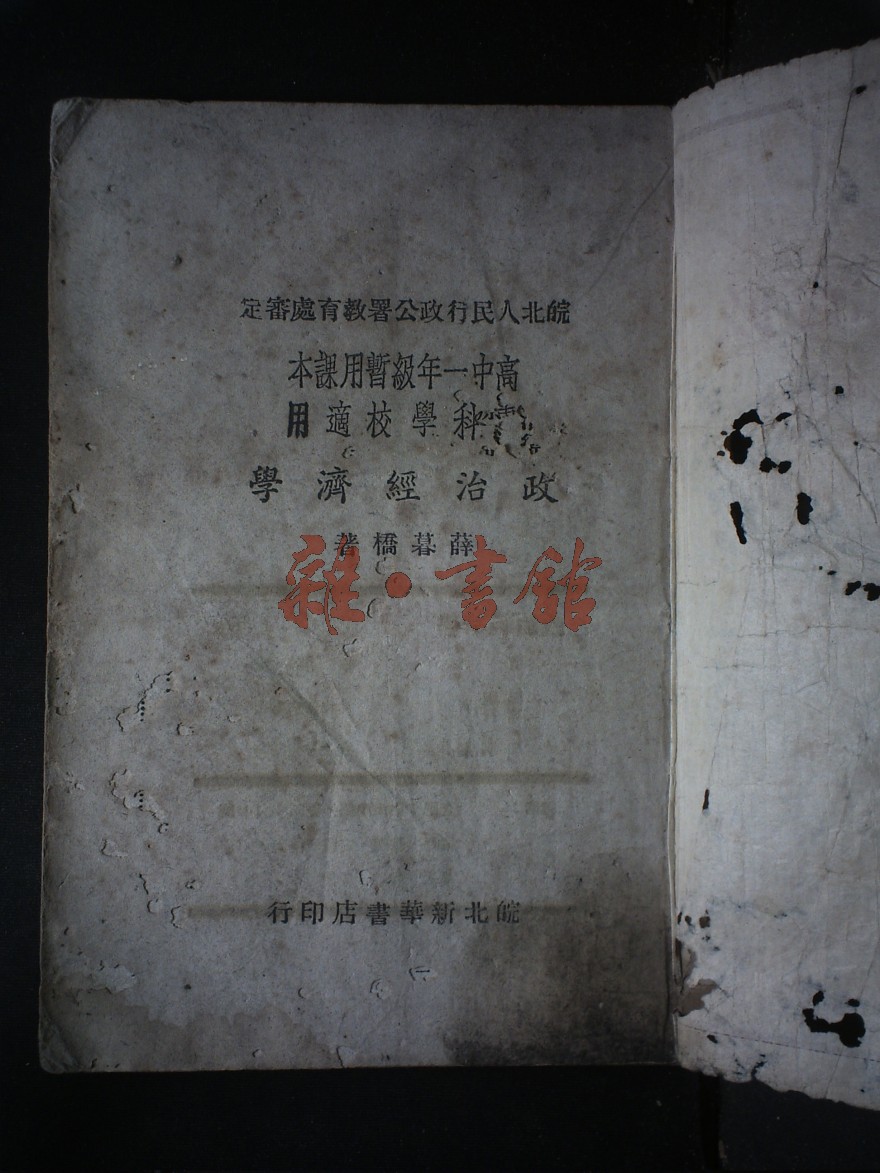 皖北人民行政公署教育處審定
高中一年級暫用課本
科學校適用
政治經濟學
薛暮橋著
雜·書館
皖北新華書店印行